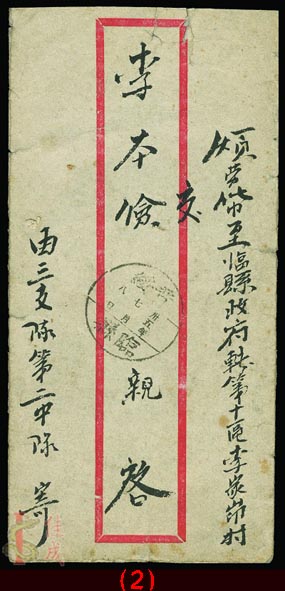 煩帶至临縣政府轉第十區李家峁村
交
李本儉 親啓
由三支隊第二中隊 寄
臨縣
佳成
(2)